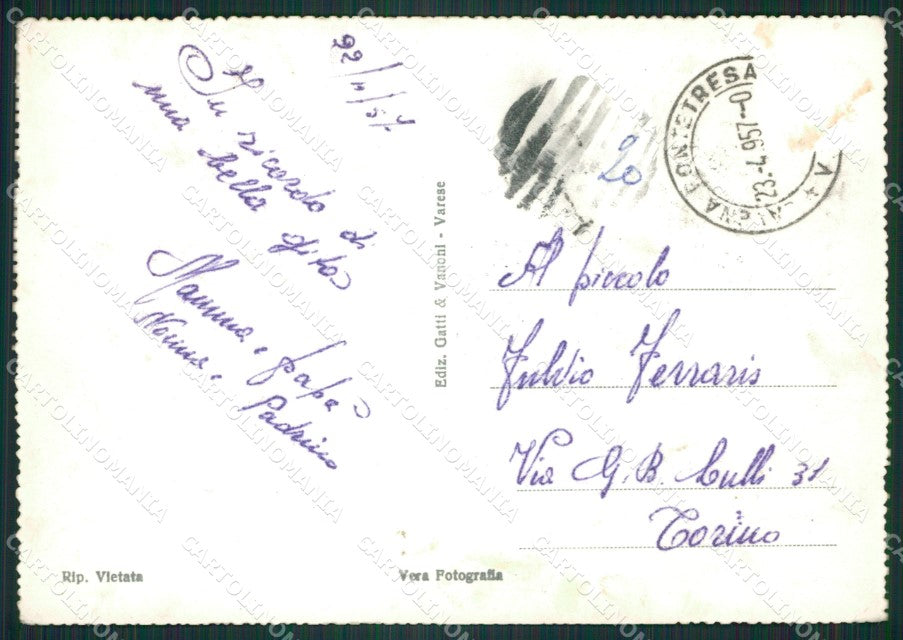 22/7/57
In ricordo di
una bella gita
Mamma, papà
Nonna, Padrino
Ediz. Gatti & Vanoni - Varese
20
PONTETRESA
23-7-957
Al piccolo
Fulvio Ferraris
Via G. B. Lulli 31
Torino
Rip. Vietata
Vera Fotografia
CARTOLINOMANIA